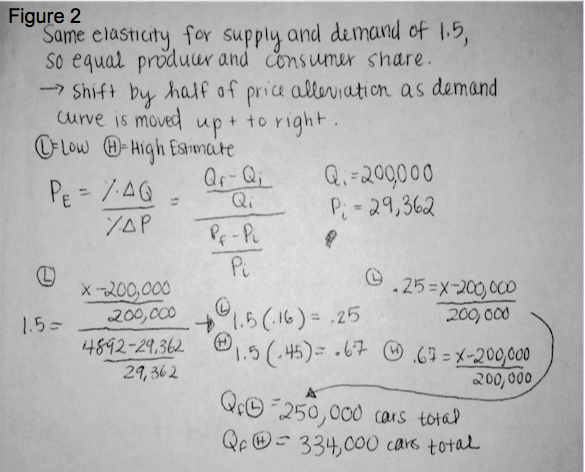 Figure 2
Same elasticity for supply and demand of 1.5,
so equal producer and consumer share.
→ Shift by half of price alleviation as demand
curve is moved up + to right.
Ⓛ=Low Ⓗ=High Estimate
P_E = %ΔQ / %ΔP = ((Q_f - Q_i) / Q_i) / ((P_f - P_i) / P_i)
Q_i = 200,000
P_i = 29,362
Ⓛ 1.5 = ((x - 200,000) / 200,000) / ((4892 - 29,362) / 29,362)
→ Ⓛ 1.5 (.16) = .25
Ⓗ 1.5 (.45) = .67
Ⓛ .25 = (x - 200,000) / 200,000
Ⓗ .67 = (x - 200,000) / 200,000
Q_f Ⓛ = 250,000 cars total
Q_f Ⓗ = 334,000 cars total